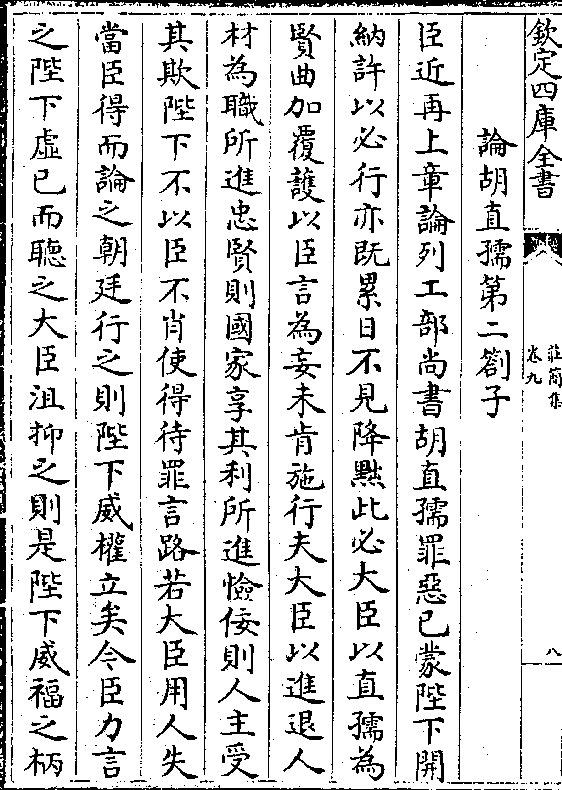 欽定四庫全書
莊簡集
卷九
八
論胡直孺第二劄子
臣近再上章論列工部尚書胡直孺罪惡已蒙陛下開
納許以必行亦既累日不見降黜此必大臣以直孺為
賢曲加覆護以臣言為妄未肯施行夫大臣以進退人
材為職所進忠賢則國家享其利所進憸佞則人主受
其欺陛下不以臣不肖使得待罪言路若大臣用人失
當臣得而論之朝廷行之則陛下威權立矣今臣力言
之陛下虛已而聽之大臣沮抑之則是陛下威福之柄